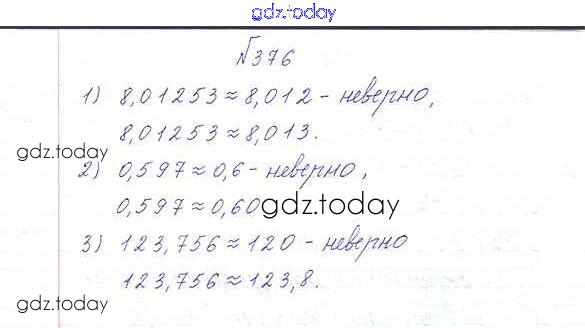 gdz.today
№376
1) 8,01253 ≈ 8,012 - неверно,
8,01253 ≈ 8,013.
gdz.today
2) 0,597 ≈ 0,6 - неверно,
0,597 ≈ 0,60
gdz.today
3) 123,756 ≈ 120 - неверно
123,756 ≈ 123,8.
gdz.today